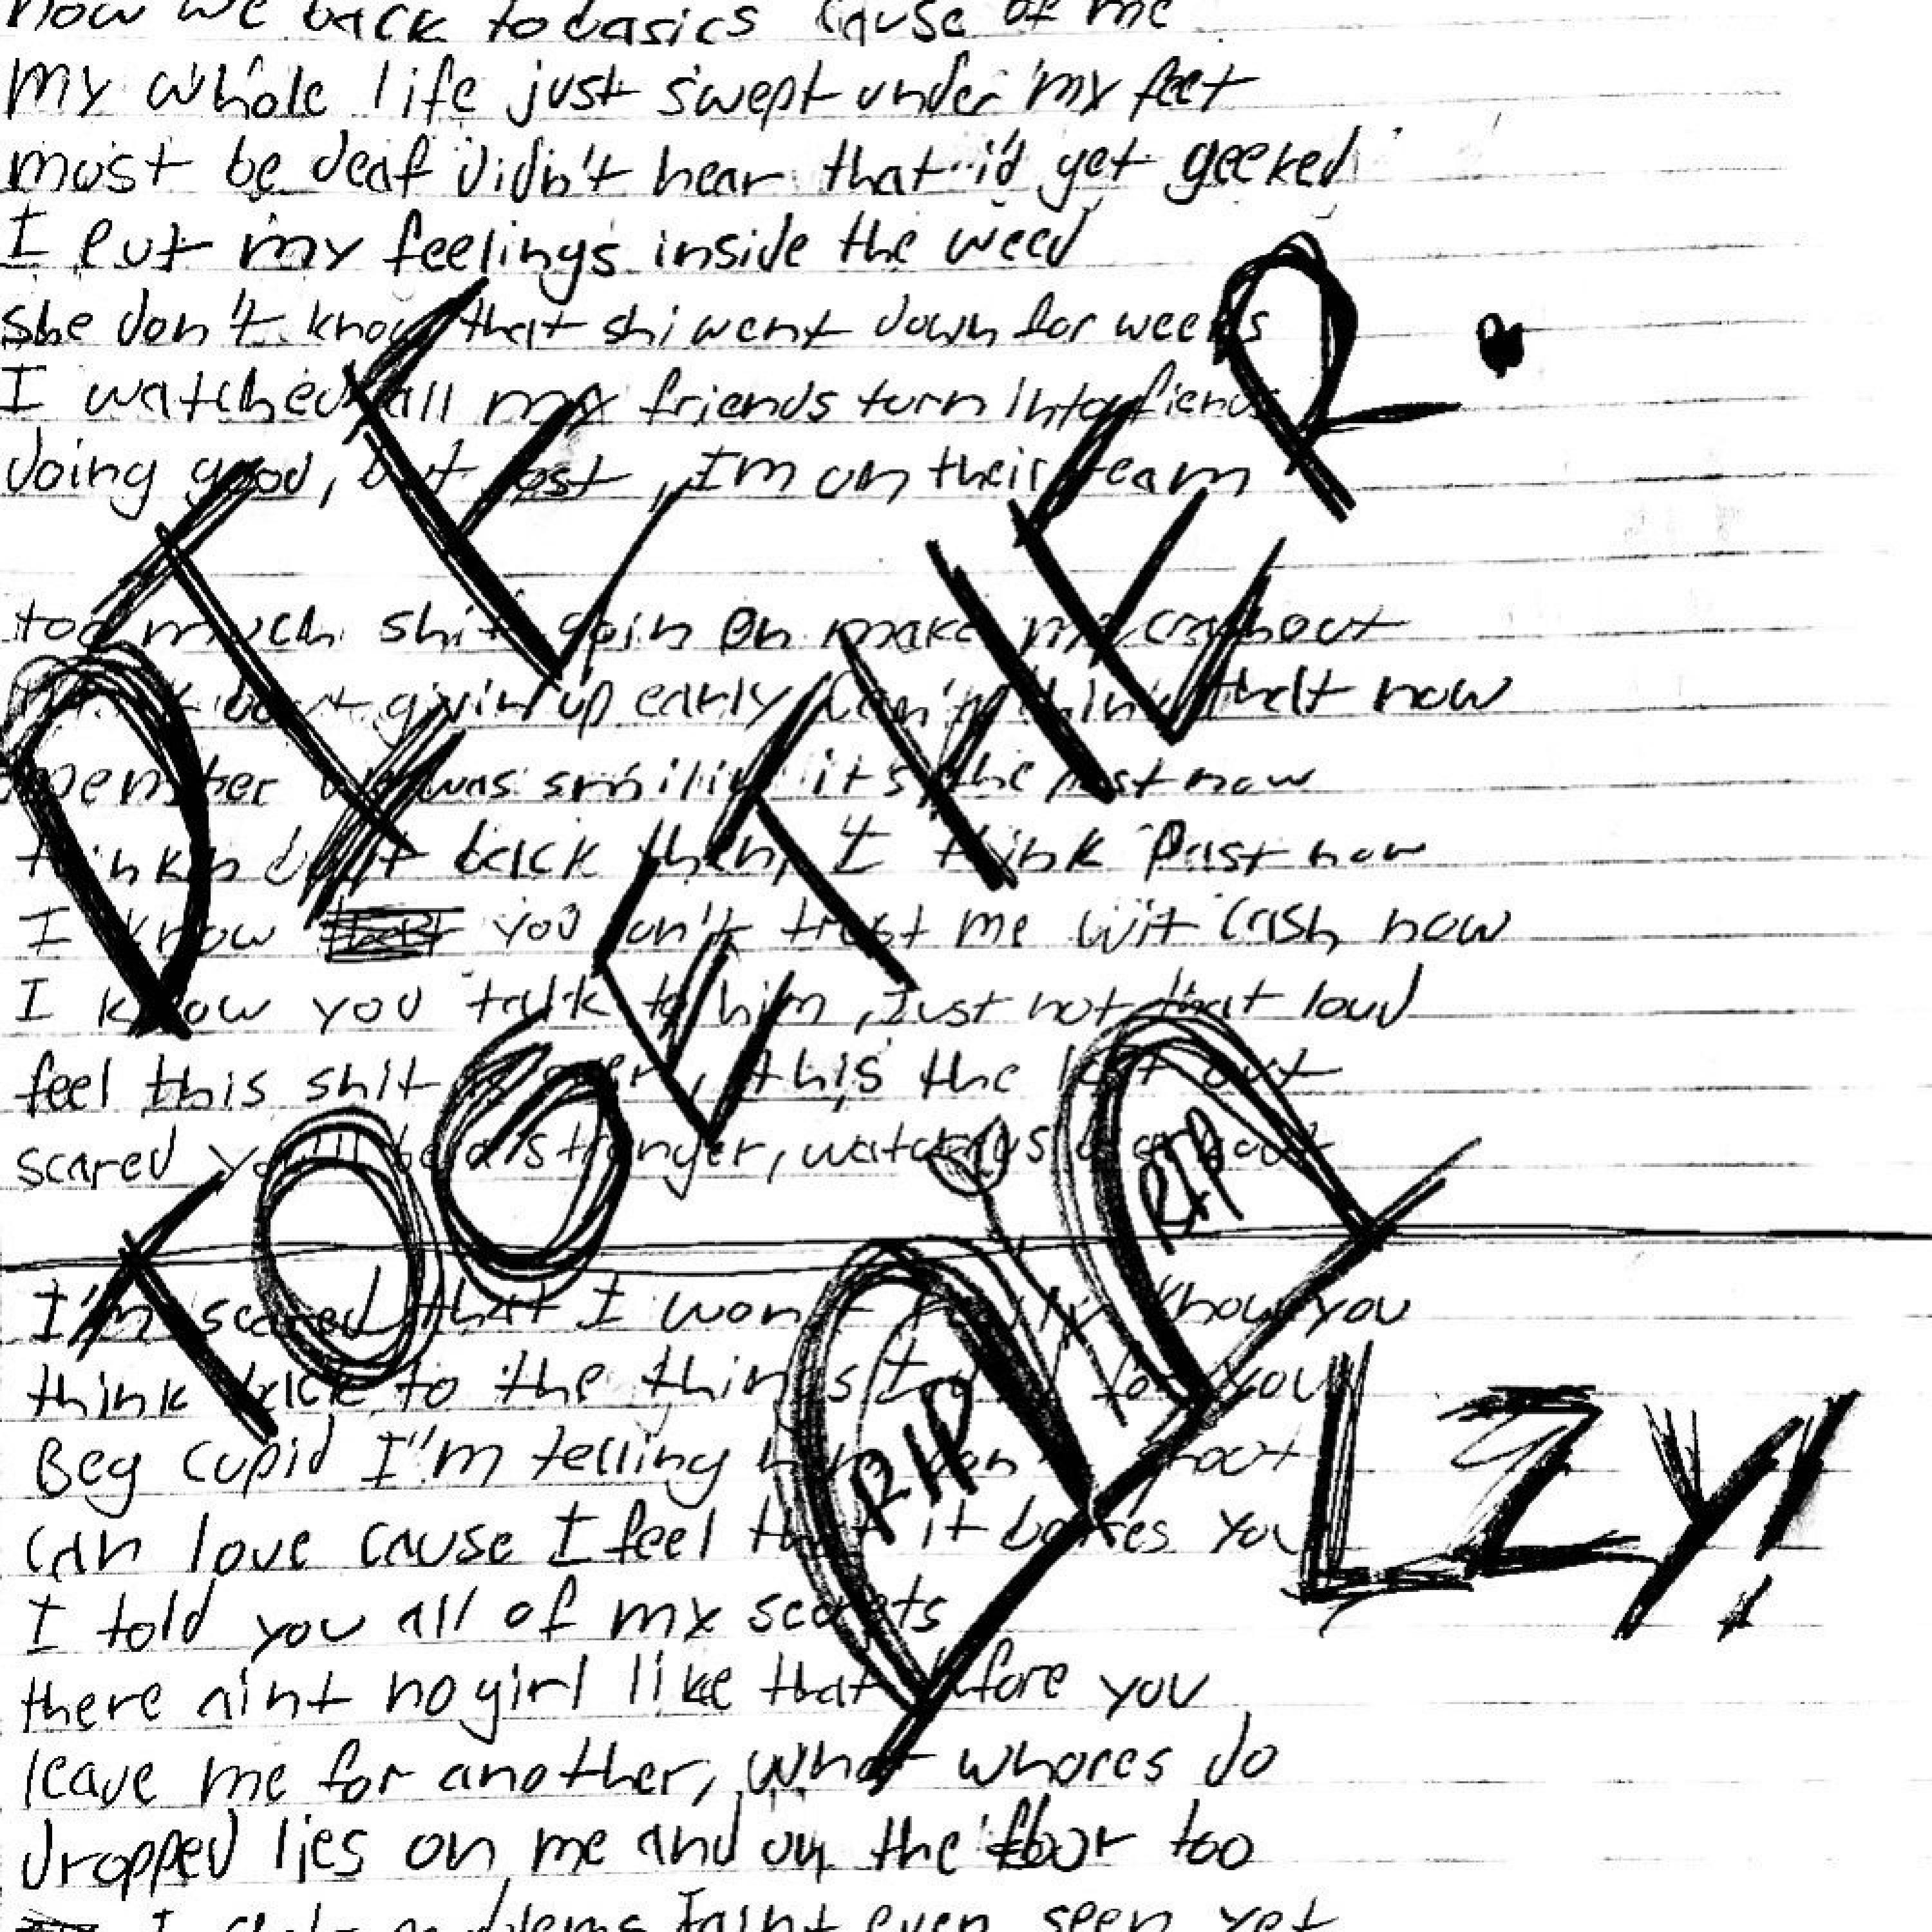 now we back to basics cause of me
my whole life just swept under my feet
must be deaf didn't hear that i'd get geeked
I put my feelings inside the weed
she don't know that shi went down for weeks
I watched all my friends turn into fiends
doing good, but lost, I'm on their team
too much shit goin on make me crashout
bout givin up early can't think that now
was smilin it's the past now
thinkin bout back then, I think past now
I know you don't trust me wit cash now
I know you talk to him, just not that loud
feel this shit is over, this the last out
scared you'll be a stranger, watch us
I'm scared that I won't really know you
think back to the things for you
Beg cupid I'm telling him don't shoot
can love cause I feel that it bores you
I told you all of my secrets
there aint no girl like that before you
leave me for another, what whores do
dropped lies on me and on the floor too
I problems I aint even seen yet
DIE
TOGETHER.
RIP
RIP
LZY!